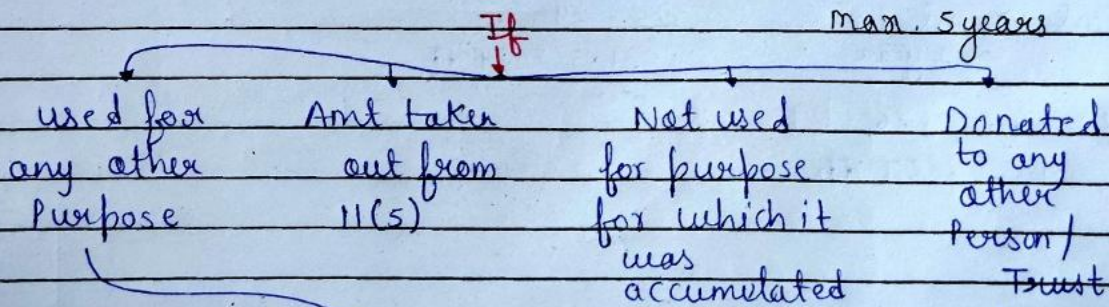 If
Max. 5 years
used for any other Purpose
Amt taken out from 11(5)
Not used for purpose for which it was accumulated
Donated to any other Person/ Trust